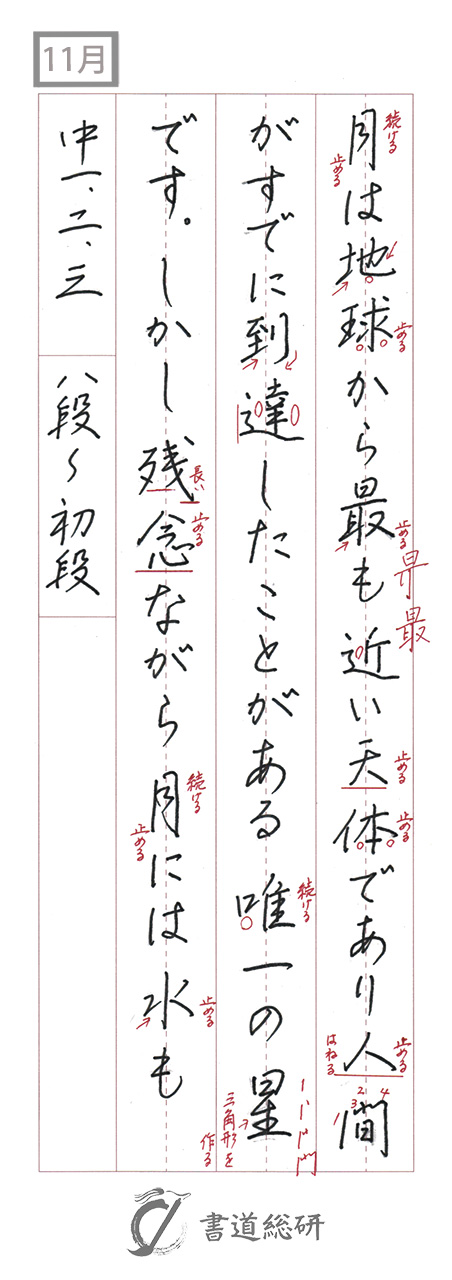 11月
月は地球から最も近い天体であり人間
がすでに到達したことがある唯一の星
です。しかし残念ながら月には水も
中一、二、三
八段〜初段
続ける
止める
止める
止める
昦最
止める
止める
止める
はねる
1 2 3 4
続ける
三角形を
作る
長い
止める
続ける
止める
止める
書道総研